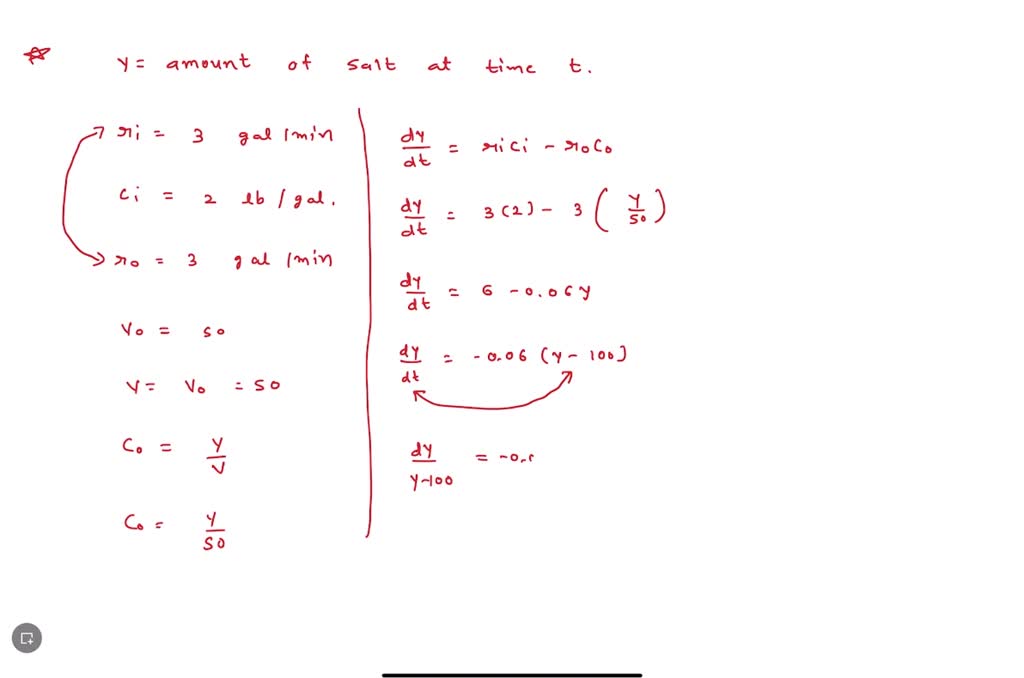 Y = amount of salt at time t.
ri = 3 gal/min
Ci = 2 lb/gal.
ro = 3 gal/min
Vo = 50
V = Vo = 50
Co = Y/V
Co = Y/50
dy/dt = riCi - roCo
dy/dt = 3(2) - 3(Y/50)
dy/dt = 6 - 0.06Y
dy/dt = -0.06(Y - 100)
dy/Y-100 = -0.